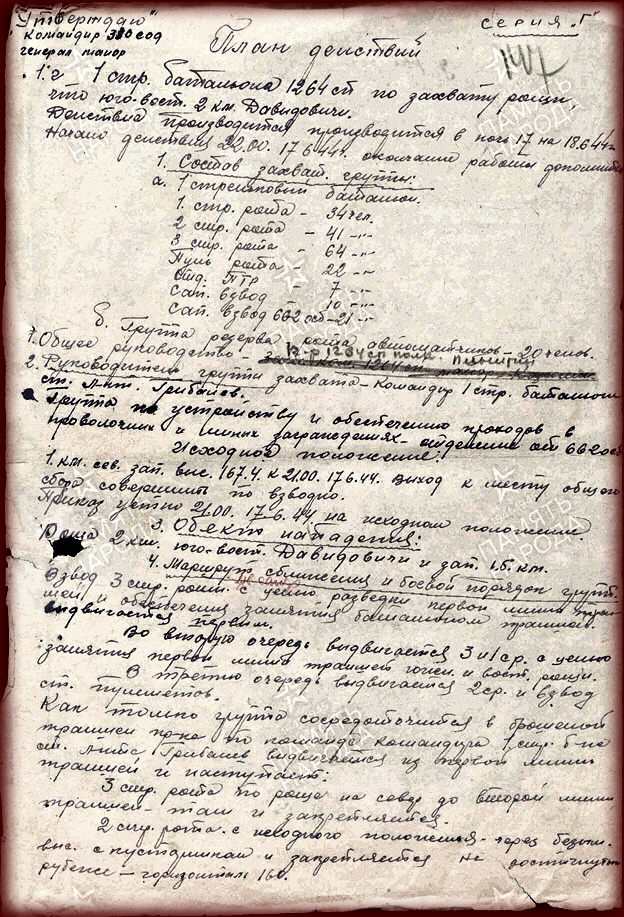 "Утверждаю"
Командир 380 сод
генерал майор
серия "Г"
План действий
1:г 1 стр. батальона 1264 сп по захвату рощи
что юго-вост. 2 км. Давидовичи.
Действия производится производится в ночь 17 на 18.6.44г
Начало действия 22.00. 17.6.44г. окончание работы дополнит
1. Состав захват. группы:
а. 1 стрелковый батальон.
1. стр. рота - 34 чел.
2 стр. рота - 41 -"-
3 стр. рота - 64 -"-
Пуль рота - 22 -"-
Отд. ПТР - 7 -"-
Сап. взвод - 10 -"-
Сап. взвод 662 осб - 21 -"-
б. Группа резерва рота автоматчиков - 20 челов.
1. Общее руководство - к-р 1264 сп
2. Руководитель группы захвата - Командир 1 стр. батальона
ст. л-нт. Грибанев.
Группа по устройству и обеспечению проходов в
проволочных и минных заграждениях - отделение от 662 осб
Исходное положение:
1. км. сев. зап. выс. 167.4. к 21.00. 17.6.44. Выход к месту общего
сбора совершить по взводно.
Приказ устно 21.00. 17-6.44 на исходном положении
3. Объект нападения:
Роща 2 км. юго-вост. Давидовичи и зап. 1.5. км.
4. Маршрут сближения и боевой порядок групп.
Взвод 3 стр. роты с целью разведки первой линии тран
шей и обеспечения занятия батальоном траншей.
выдвигается первым.
Во вторую очередь выдвигается 3 и 1 ср. с целью
занятия первой линии траншей южн. и вост. рощи.
В третью очередь выдвигается 2 ср. и взвод
ст. пулеметов.
Как только группа сосредоточится в брошенной
траншеи пр-ка по команде командира 1 стр. б-на
ст. л-нта Грибанев выдвигается из первой линии
траншей и наступает:
3 стр. рота по роще на север до второй линии
траншей - там и закрепляется.
2 стр. рота с исходного положения - через безым.
выс. с кустарником и закрепляется на достигнутом
рубеже - горизонталь 160.